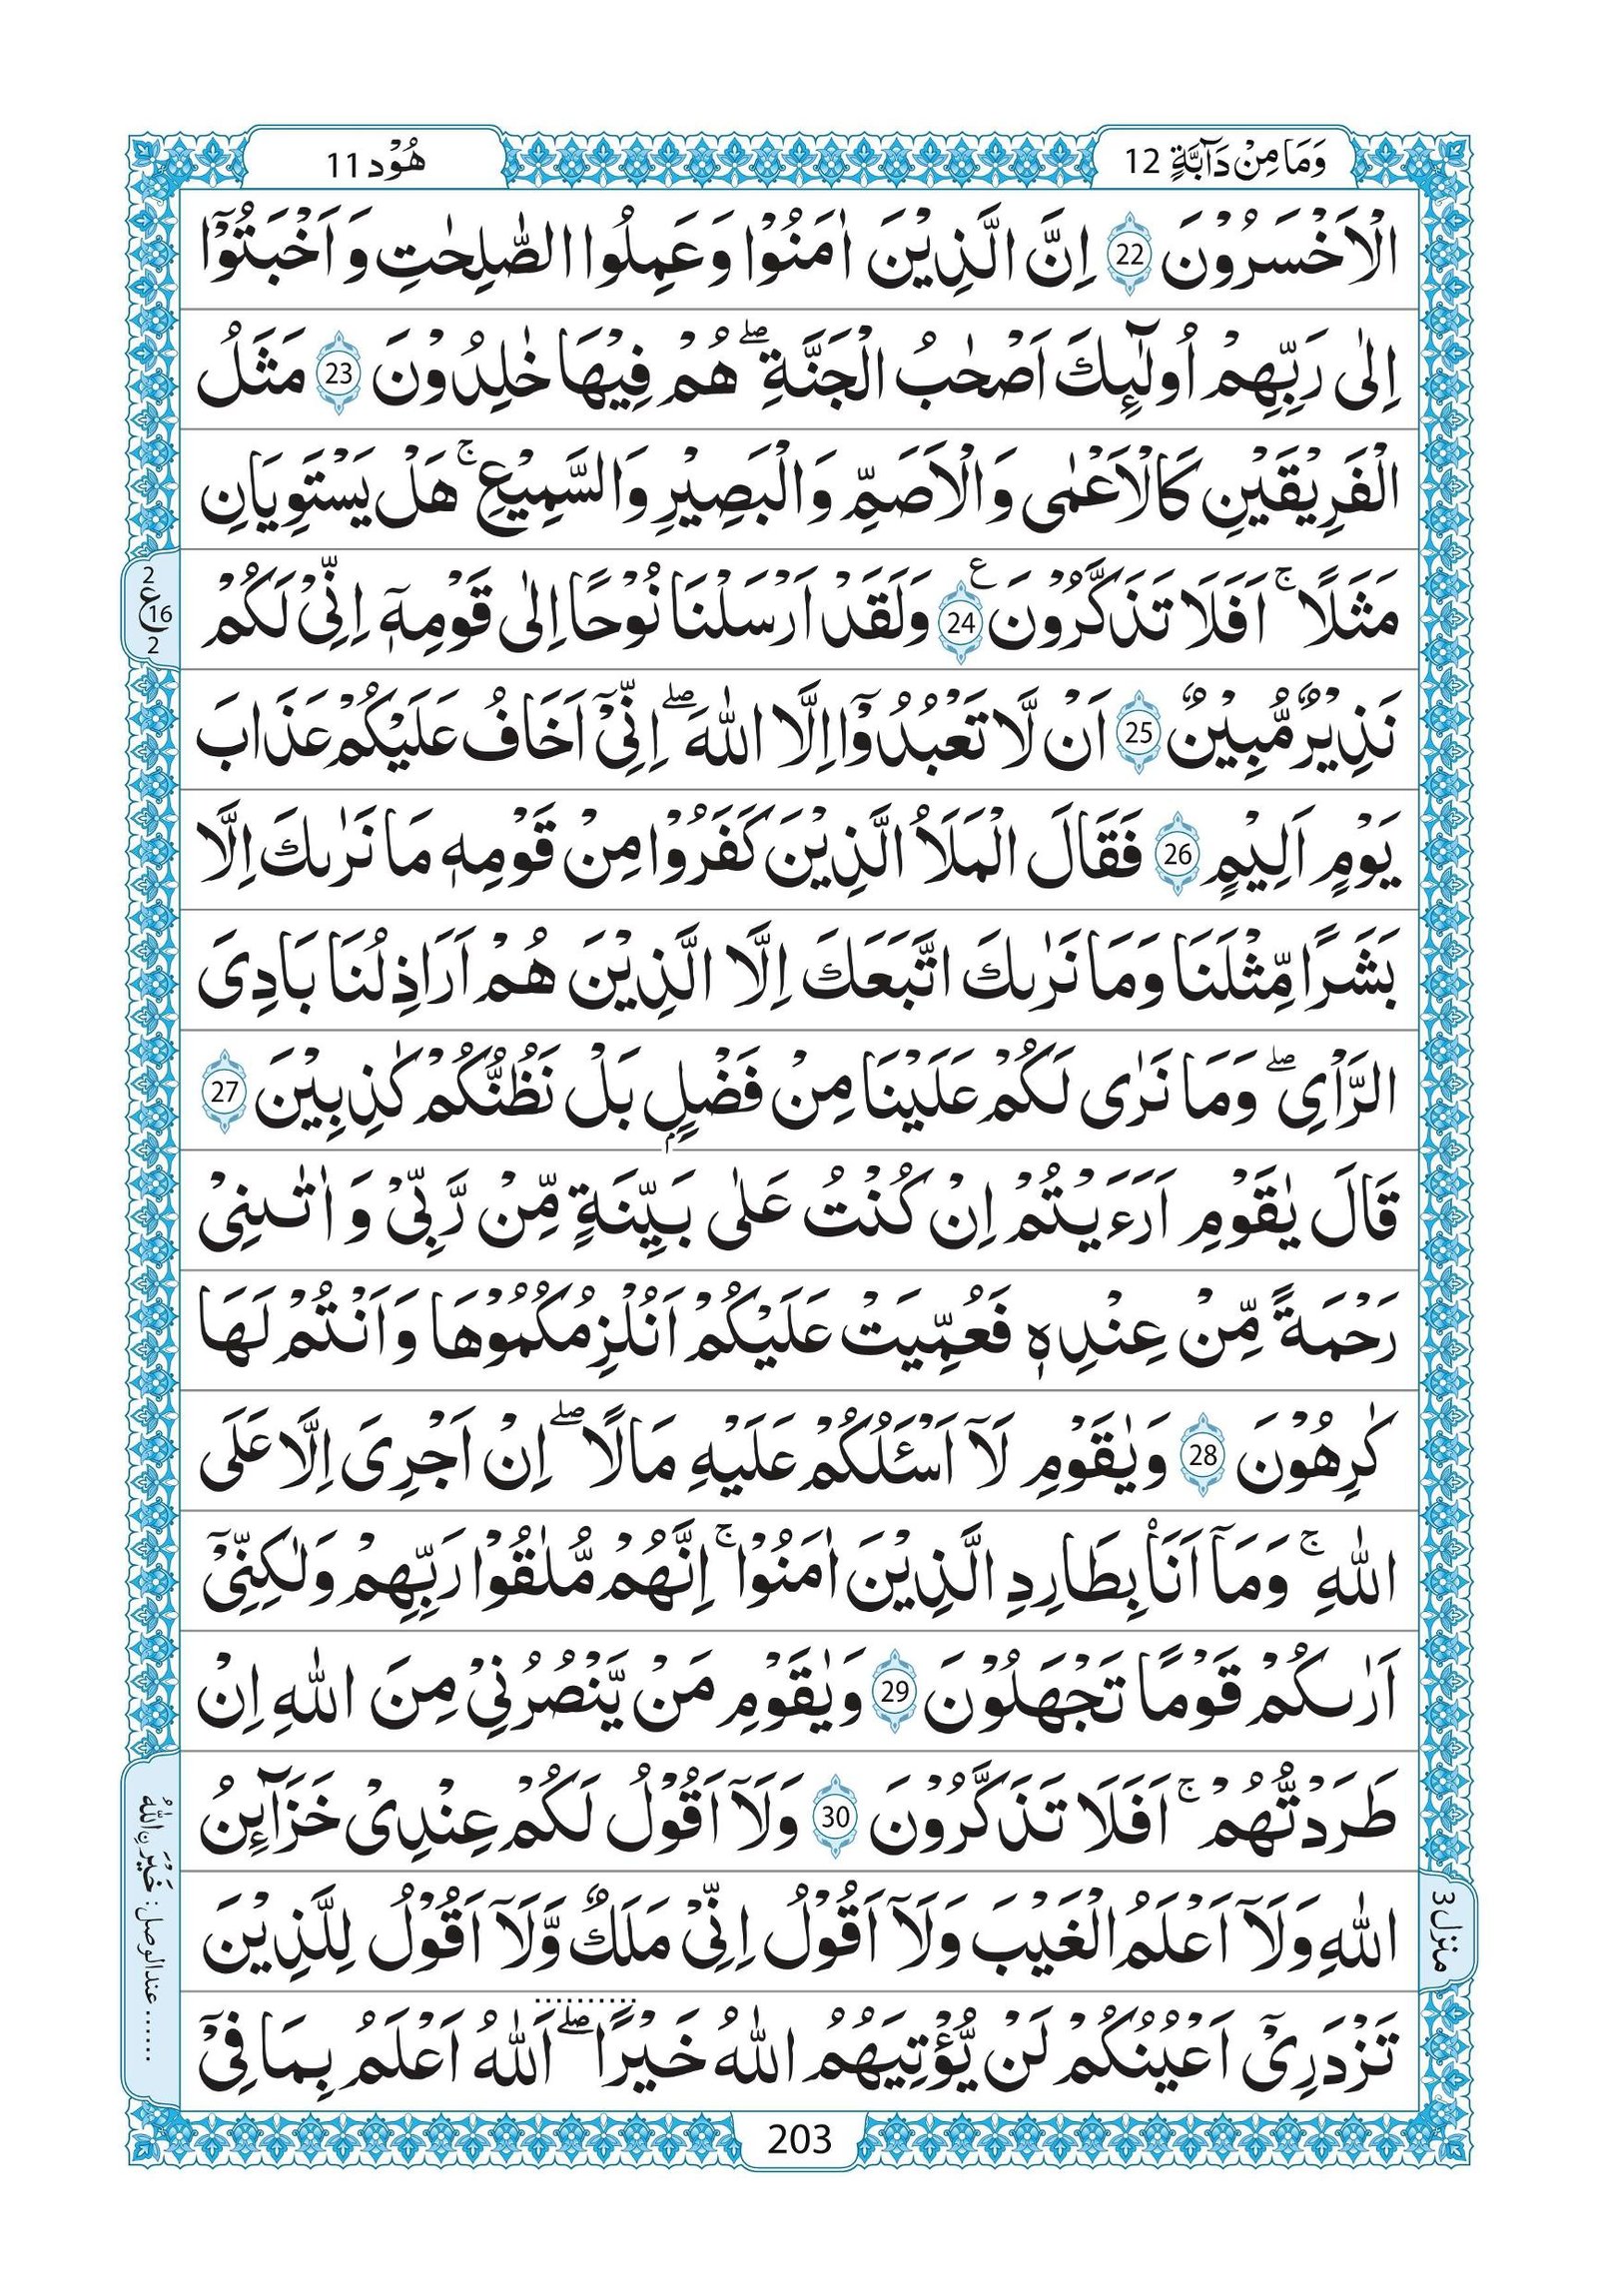 وَمَا مِنْ دَآبَّةٍ 12
هُوْد 11
الْاَخْسَرُوْنَ 22 اِنَّ الَّذِيْنَ اٰمَنُوْا وَعَمِلُوا الصّٰلِحٰتِ وَ اَخْبَتُوْٓا
اِلٰى رَبِّهِمْ اُولٰٓئِكَ اَصْحٰبُ الْجَنَّةِ ۖ هُمْ فِيْهَا خٰلِدُوْنَ 23 مَثَلُ
الْفَرِيْقَيْنِ كَالْاَعْمٰى وَالْاَصَمِّ وَالْبَصِيْرِ وَالسَّمِيْعِ ۚ هَلْ يَسْتَوِيَانِ
مَثَلًا ۚ اَفَلَا تَذَكَّرُوْنَ 24 ع وَلَقَدْ اَرْسَلْنَا نُوْحًا اِلٰى قَوْمِهٖٓ اِنِّىْ لَكُمْ
2
ع 16
2
نَذِيْرٌ مُّبِيْنٌ 25 اَنْ لَّا تَعْبُدُوْٓا اِلَّا اللّٰهَ ۖ اِنِّىْٓ اَخَافُ عَلَيْكُمْ عَذَابَ
يَوْمٍ اَلِيْمٍ 26 فَقَالَ الْمَلَاُ الَّذِيْنَ كَفَرُوْا مِنْ قَوْمِهٖ مَا نَرٰىكَ اِلَّا
بَشَرًا مِّثْلَنَا وَمَا نَرٰىكَ اتَّبَعَكَ اِلَّا الَّذِيْنَ هُمْ اَرَاذِلُنَا بَادِىَ
الرَّاْىِ ۖ وَمَا نَرٰى لَكُمْ عَلَيْنَا مِنْ فَضْلٍۭ بَلْ نَظُنُّكُمْ كٰذِبِيْنَ 27
قَالَ يٰقَوْمِ اَرَءَيْتُمْ اِنْ كُنْتُ عَلٰى بَيِّنَةٍ مِّنْ رَّبِّىْ وَ اٰتٰىنِىْ
رَحْمَةً مِّنْ عِنْدِهٖ فَعُمِّيَتْ عَلَيْكُمْ اَنُلْزِمُكُمُوْهَا وَاَنْتُمْ لَهَا
كٰرِهُوْنَ 28 وَيٰقَوْمِ لَآ اَسْـَٔلُكُمْ عَلَيْهِ مَالًا ۖ اِنْ اَجْرِىَ اِلَّا عَلَى
اللّٰهِ ۚ وَمَآ اَنَا۠ بِطَارِدِ الَّذِيْنَ اٰمَنُوْا ۚ اِنَّهُمْ مُّلٰقُوْا رَبِّهِمْ وَلٰكِنِّىْٓ
اَرٰىكُمْ قَوْمًا تَجْهَلُوْنَ 29 وَيٰقَوْمِ مَنْ يَّنْصُرُنِىْ مِنَ اللّٰهِ اِنْ
طَرَدْتُّهُمْ ۚ اَفَلَا تَذَكَّرُوْنَ 30 وَلَآ اَقُوْلُ لَكُمْ عِنْدِىْ خَزَآئِنُ
اللّٰهِ وَلَآ اَعْلَمُ الْغَيْبَ وَلَآ اَقُوْلُ اِنِّىْ مَلَكٌ وَّلَآ اَقُوْلُ لِلَّذِيْنَ
تَزْدَرِىْٓ اَعْيُنُكُمْ لَنْ يُّؤْتِيَهُمُ اللّٰهُ خَيْرًا ۖ اَللّٰهُ اَعْلَمُ بِمَا فِىْٓ
منزل 3
عند الوصل: خَيْرَنِ اللّٰهُ
203